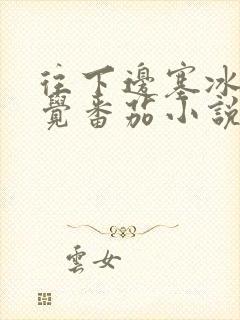 往下邊塞冰
覺番茄小說
雲女